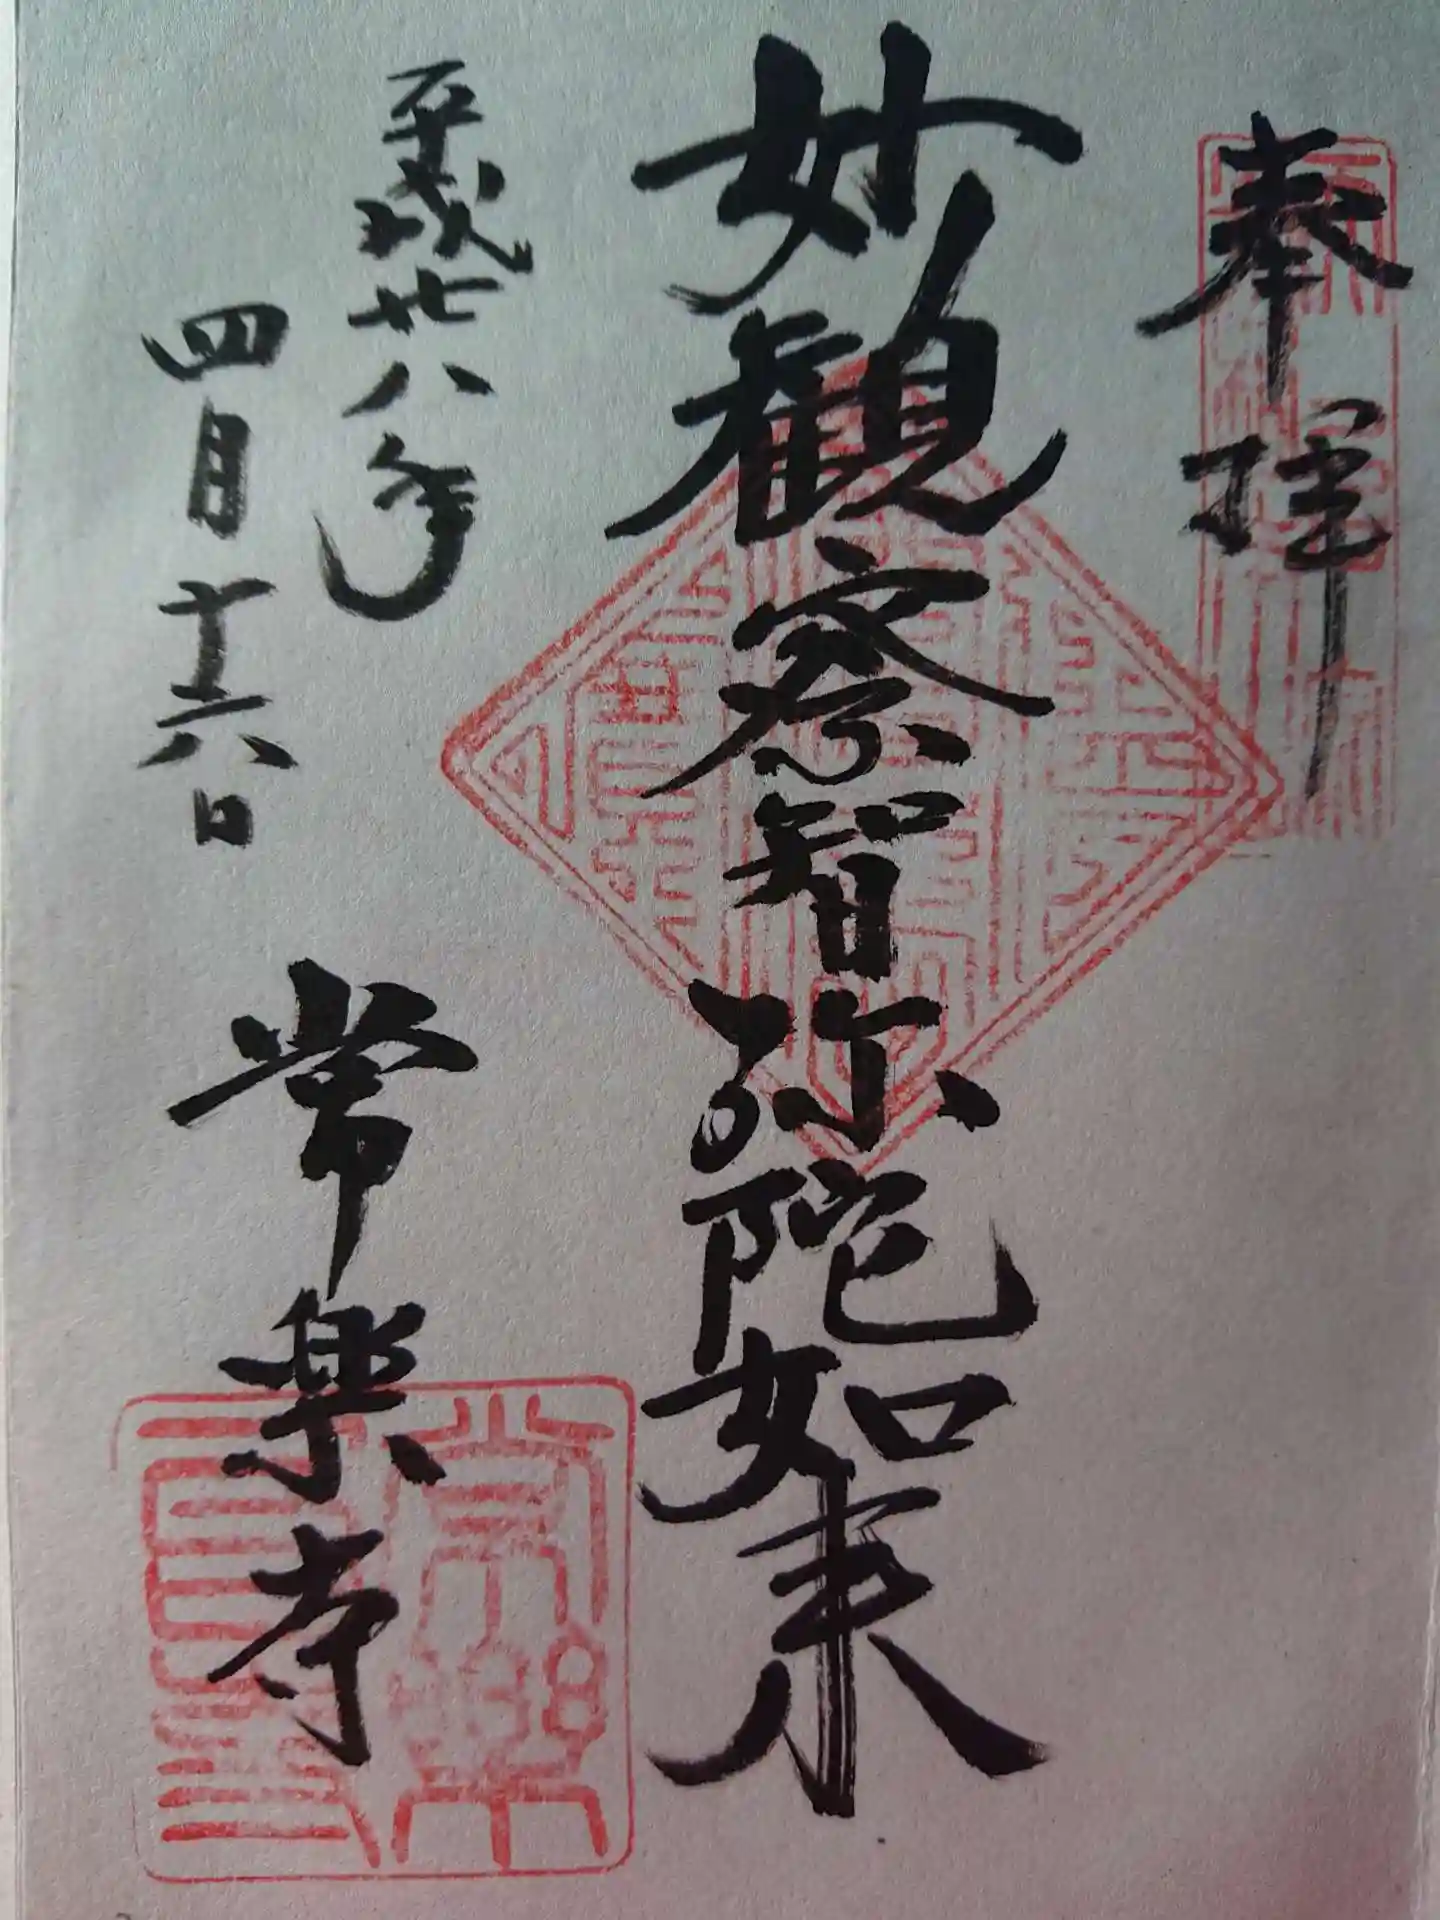 奉拝
妙観察智弥陀如来
平成廿八年
四月十六日
常楽寺